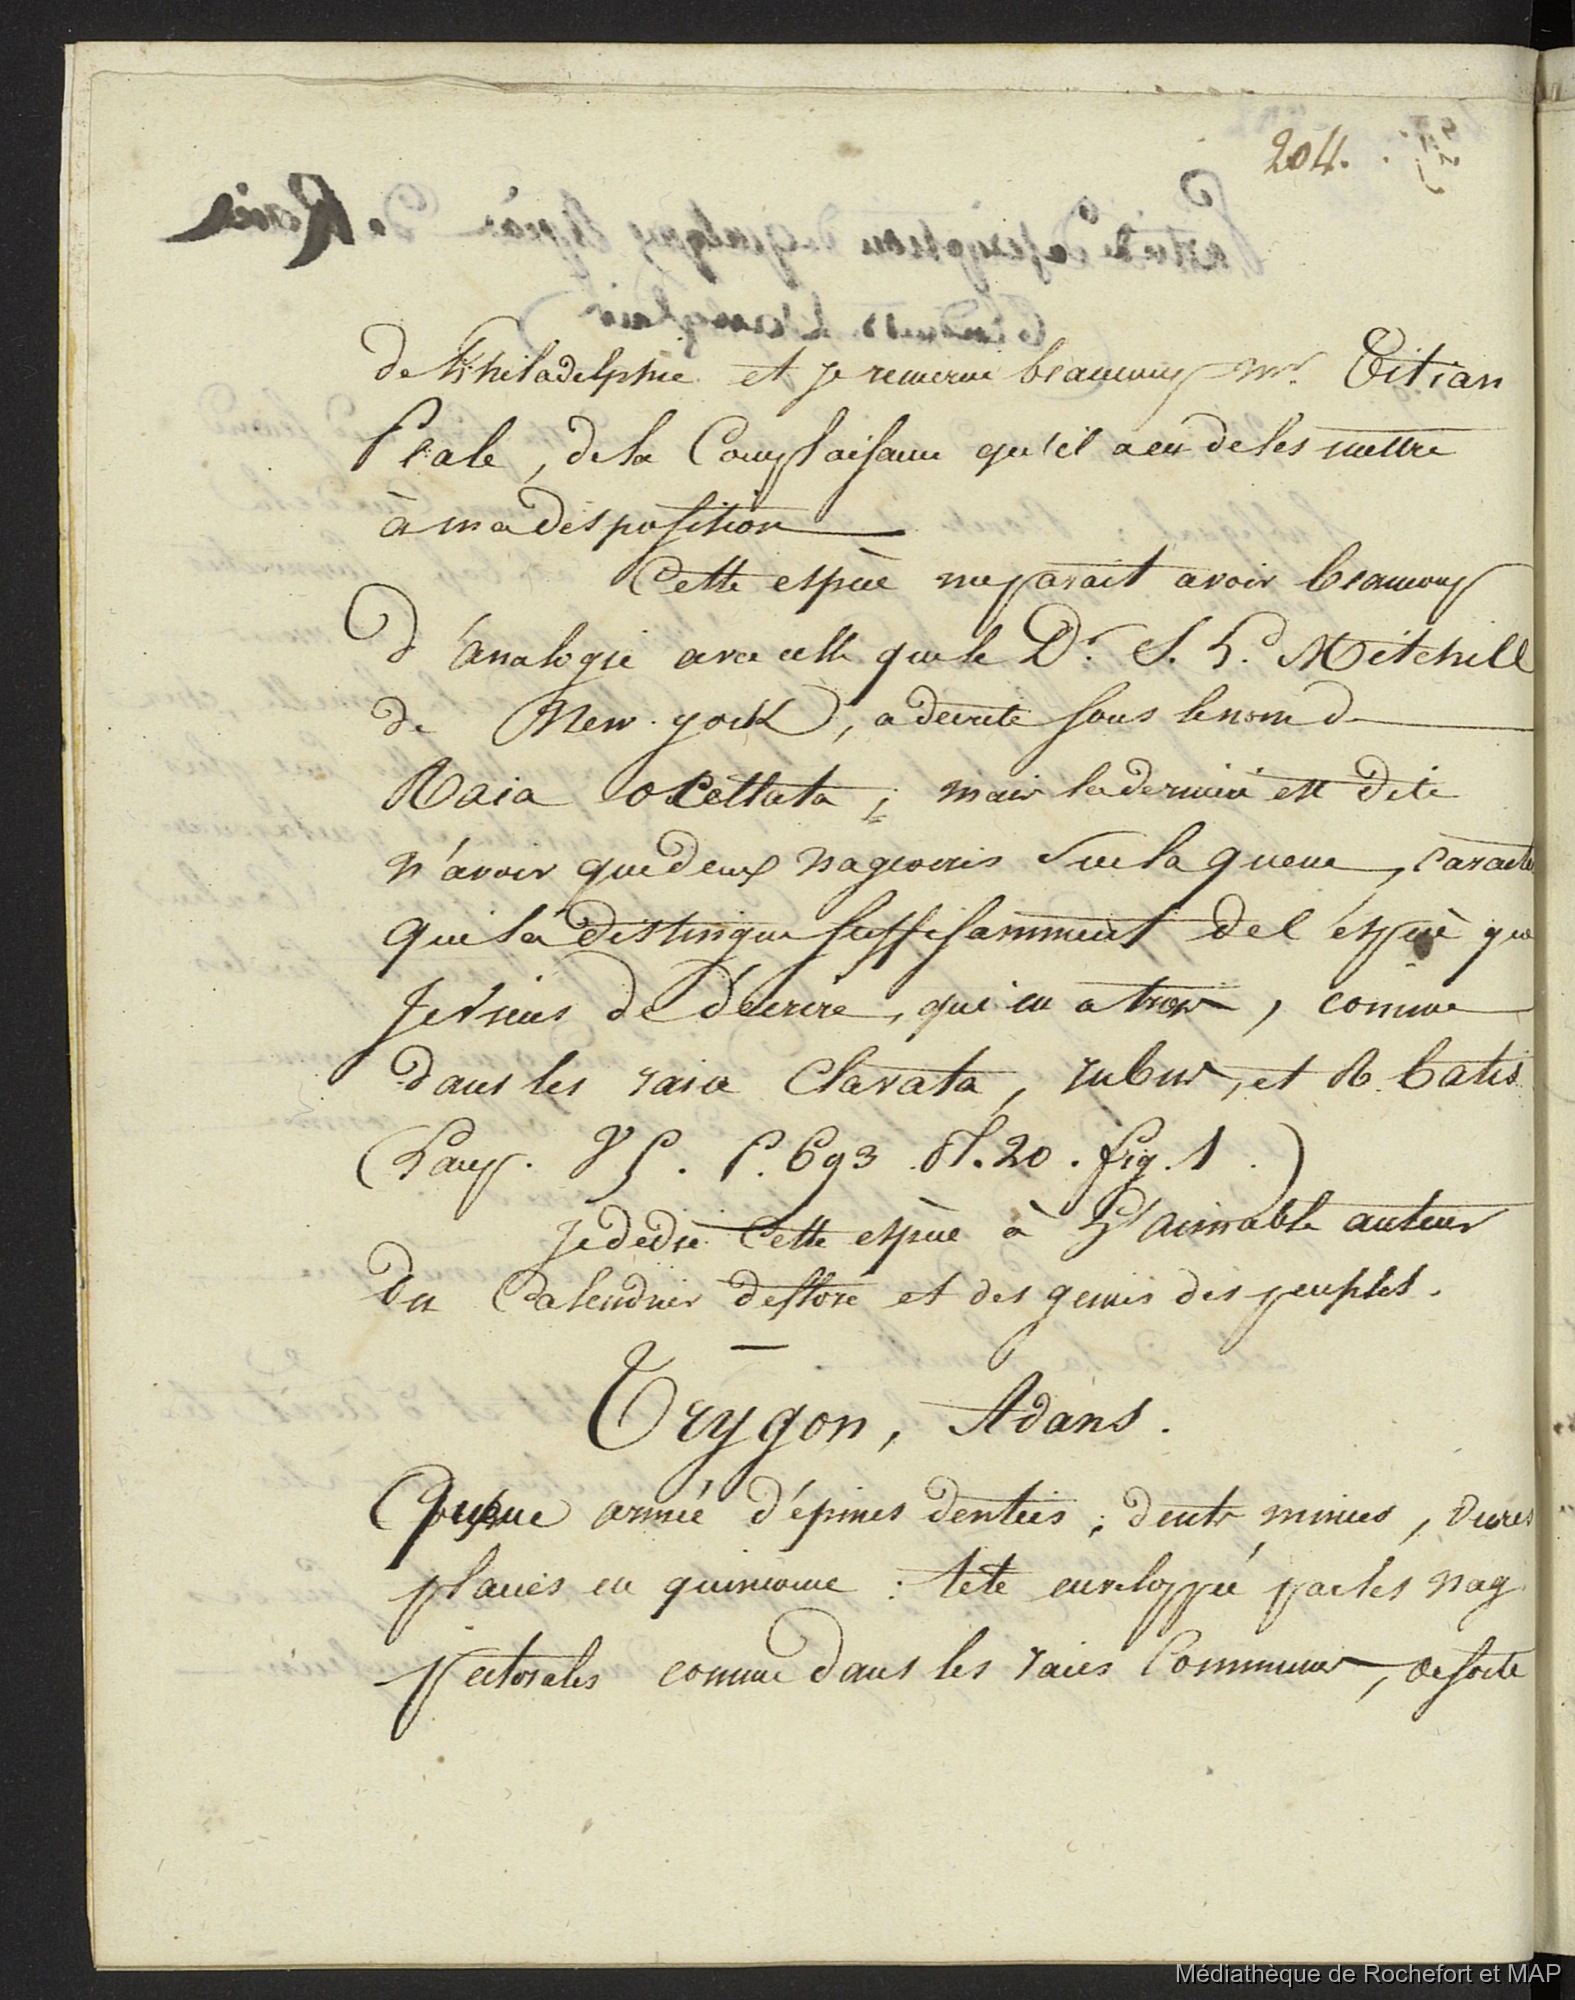 204.
de Philadelphie et je remercie beaucoup mr. Titian
Peale, de la Complaisance qu'il a eu de les mettre
à ma disposition
Cette espèce me parait avoir beaucoup
d'analogie avec celle que le Dr. S. L. Mitchill
de New-york, a decrite sous le nom de
Raia ocellata; mais la dernière est dite
n'avoir que deux nageoires sur la queue, caracte
qui la distingue suffisamment de l'éspèce que
je viens de décrire, qui en a trois, comme
dans les raia Clavata, rubus, et R. batis
(Lacep. V 5. P. 693 Pl. 20. fig. 1.)
je dédie Cette espèce à L'aimable auteur
du Calendrier de flore et des genies des peuples.
Trygon, Adans.
Queue armée d'épines dentées; dents minces, dures
placées en quinconce: tete enveloppée par les nag.
pectorales comme dans les raies Communes, de sorte
Médiathèque de Rochefort et MAP